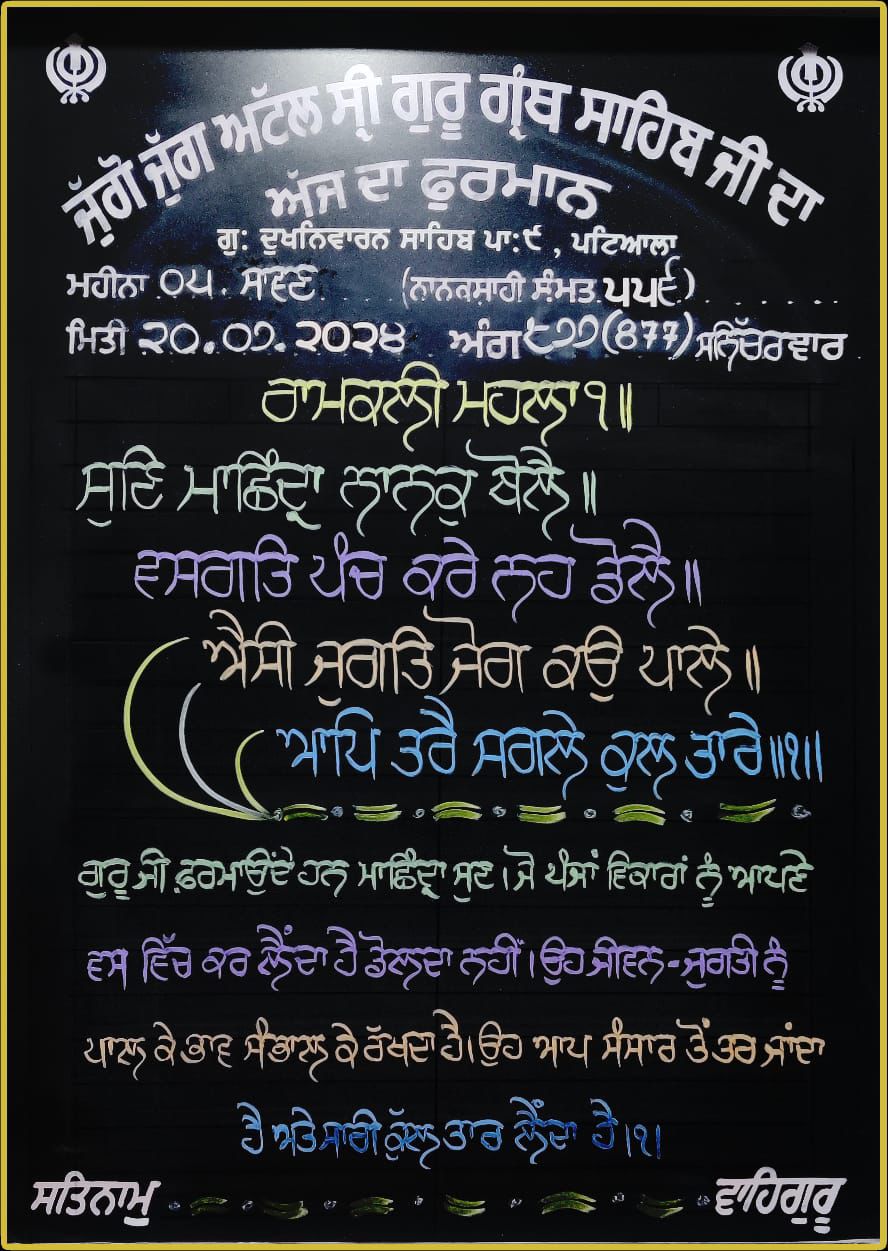 ਜੁੱਗੋ ਜੁੱਗ ਅਟੱਲ ਸ੍ਰੀ ਗੁਰੂ ਗ੍ਰੰਥ ਸਾਹਿਬ ਜੀ ਦਾ
ਅੱਜ ਦਾ ਫੁਰਮਾਨ
ਗੁ: ਦੁਖਨਿਵਾਰਨ ਸਾਹਿਬ ਪਾ:੯ , ਪਟਿਆਲਾ
ਮਹੀਨਾ ੦੫. ਸਾਵਣ (ਨਾਨਕਸ਼ਾਹੀ ਸੰਮਤ ੫੫੬)
ਮਿਤੀ ੨੦.੦੭.੨੦੨੪ ਅੰਗ ੮੭੭(877) ਸਨਿੱਚਰਵਾਰ
ਰਾਮਕਲੀ ਮਹਲਾ ੧॥
ਸੁਣਿ ਮਾਛਿੰਦ੍ਰਾ ਨਾਨਕੁ ਬੋਲੈ॥
ਵਸਗਤਿ ਪੰਚ ਕਰੇ ਨਹ ਡੋਲੈ॥
ਐਸੀ ਜੁਗਤਿ ਜੋਗ ਕਉ ਪਾਲੇ॥
ਆਪਿ ਤਰੈ ਸਗਲੇ ਕੁਲ ਤਾਰੇ॥੧॥
ਗੁਰੂ ਜੀ ਫ਼ਰਮਾਉਂਦੇ ਹਨ ਮਾਛਿੰਦ੍ਰਾ ਸੁਣ। ਜੋ ਪੰਜਾਂ ਵਿਕਾਰਾਂ ਨੂੰ ਆਪਣੇ
ਵਸ ਵਿੱਚ ਕਰ ਲੈਂਦਾ ਹੈ ਡੋਲਦਾ ਨਹੀਂ। ਉਹ ਜੀਵਨ-ਜੁਗਤੀ ਨੂੰ
ਪਾਲ ਕੇ ਭਾਵ ਸੰਭਾਲ ਕੇ ਰੱਖਦਾ ਹੈ। ਉਹ ਆਪ ਸੰਸਾਰ ਤੋਂ ਤਰ ਜਾਂਦਾ
ਹੈ ਅਤੇ ਸਾਰੀ ਕੁੱਲ ਤਾਰ ਲੈਂਦਾ ਹੈ।੧।
ਸਤਿਨਾਮੁ ਵਾਹਿਗੁਰੂ